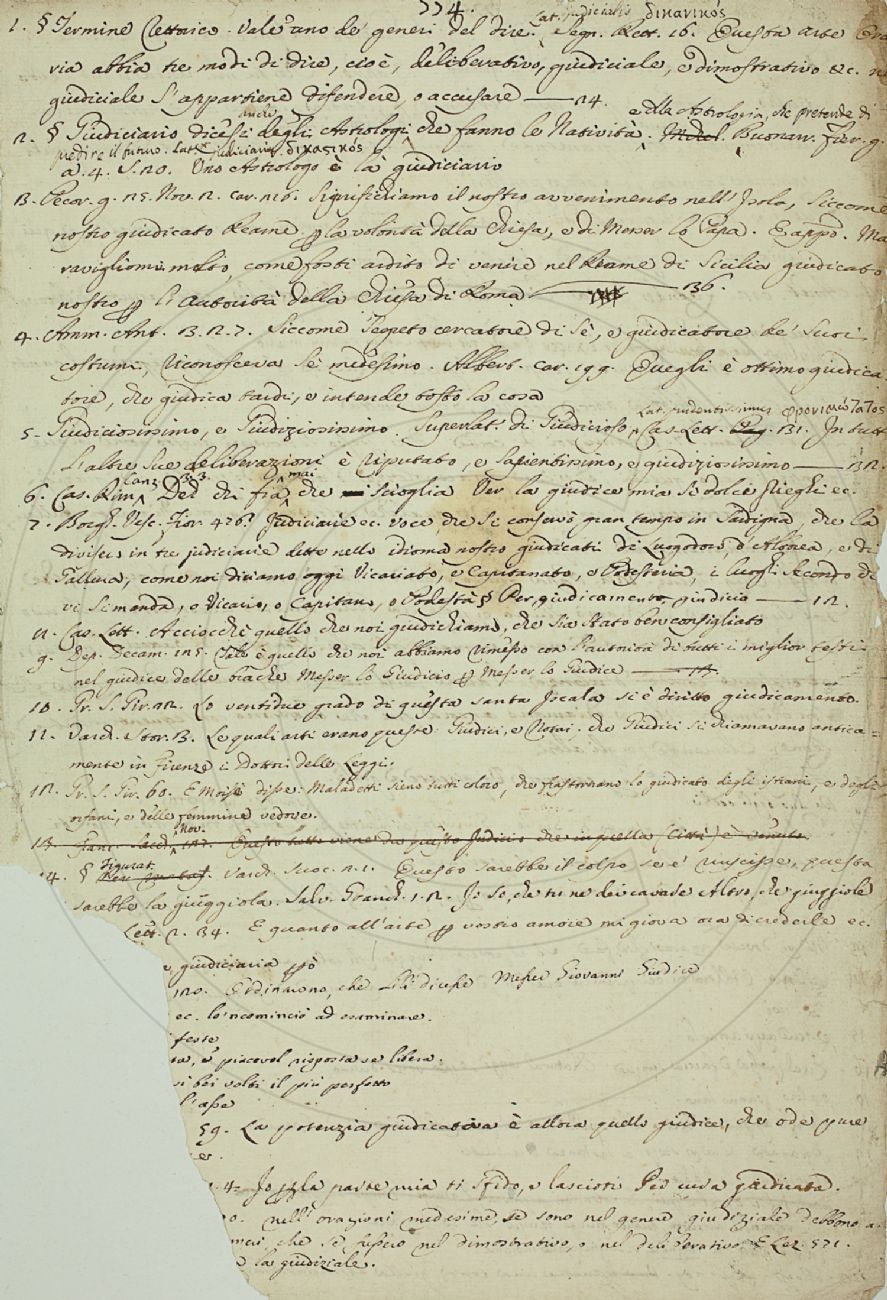 774.
Lat. judicialis δικανικός
1. § Termine Rettorico. Vale uno de' generi del dire. Segn. Rett. 16. Questa arte Ora
ria abbia tre modi di dire, cioè, deliberativo, giudiciale, e dimostrativo &c. nel
giudiciale s'appartiene difendere, o accusare — 24.
anche e alla Astrologia, che pretende di
2. § Giudiciario dicesi degli Astrologi che fanno le Natività. Buonarr. Fier. g.
predire il futuro. Lat. judiciarius δικαστικός
a. 4. S. 20. Uno Astrologo è là giudiciario
3. Pecor. g. 25. Nov. 2. car. 216. Significhiamo il nostro avvenimento nell'Isola, siccome
nostro giudicato Reame p la volontà della Chiesa, e di Messer lo Papa. E appo. Ma
ravigliomi molto, come fosti ardito di venire nel Reame di Sicilia giudicato
nostro p l'autorità della Chiesa di Roma — 136.
4. Amm. Ant. 3. 2. 7. Siccome segreto cercatore di sè, e giudicatore de' suoi
costumi, riconosceva se medesimo. Albert. car. 199. Quegli è ottimo giudica
tore, che giudica tardi, e intende tosto la cosa
Lat. prudentissimus φρονιμώτατος
5. Giudiciosissimo, e Giudiziosissimo. Superlat. di Giudicioso, Cas. Lett. 131. In tutte
l'altre sue deliberazioni è riputato, e sapientissimo, e giudiziosissimo — 132.
Canz. 3. 3. mai
6. Cas. Rim. Deh chi fia che scioglia Ver la giudice mia sì dolci prieghi ec.
7. Borgh. Vesc. Fior. 476. Judiciarie ec. voce, che si conservò gran tempo in Sardigna, che la
divisero in tre judiciarie dette nello idioma nostro giudicati di Luogodoro, d'Alborea, e di
Gallura, come noi diciamo oggi Vicariato, e Capitanato, e Podesteria, i luoghi secondo che
vi si manda, o Vicario, o Capitano, o Podestà § Per giudicamento, giudicio — 12.
Cas. Lett. Acciocchè quello che noi giudichiamo, che sia stato ben consigliato
9. Dep. Decam. 105. Tale è quello che noi abbiamo rimesso con l'autorità di tutti i miglior testi
nel giudice delle brache Messer lo Giudicio p Messer lo Giudice —
10. Gr. S. Gir. 22. Lo ventidue grado di questa santa Iscala si è diritto giudicamento.
11. Varch. Stor. 3. Le quali arti erano queste: Giudici, e Notai. che Giudici si chiamavano antica=
mente in Firenze i Dottori delle Leggi.
12. Gr. S. Gir. 60. E Moisè disse: Maladetti sieno tutti coloro, che frastornano lo giudicato degli istrani, e degli
orfani, e delle femmine vedove.
Nov.
13. Franc. Sacch. 127. Questo tutto viene da questo Judicio che in quella (Città) è venuto.
Figurat.
14. § Varch. Suoc. 2. 1. Questo sarebbe il colpo se e' riuscisse, questa
sarebbe la giuggiola. Salv. Granch. 1. 2. Io so, che tu ne dei cavare altro, che giuggiole
Lett. 2. 34. E quanto all'arte p vostro amore mi giova ora di crederle ec.
giudiciaria pò
120. Ordinarono, che lì dicesse Messer Giovanni Giudice
ec. lo 'ncominciò ad esaminare.
feste
ta, e piacevol risposta se libera.
si bei volti il più perfetto
l'asse
59. La potenzia giudicativa è allora quello giudice, che ode pure
4. Io p la parte mia ti sfido, e lascioti per cura giudicata.
nell'orazioni medesime, se sono nel genere giudiziale debbono a
che se fussero nel dimostrativo, o nel deliberativo. E Lez. 571.
la giudiziale.